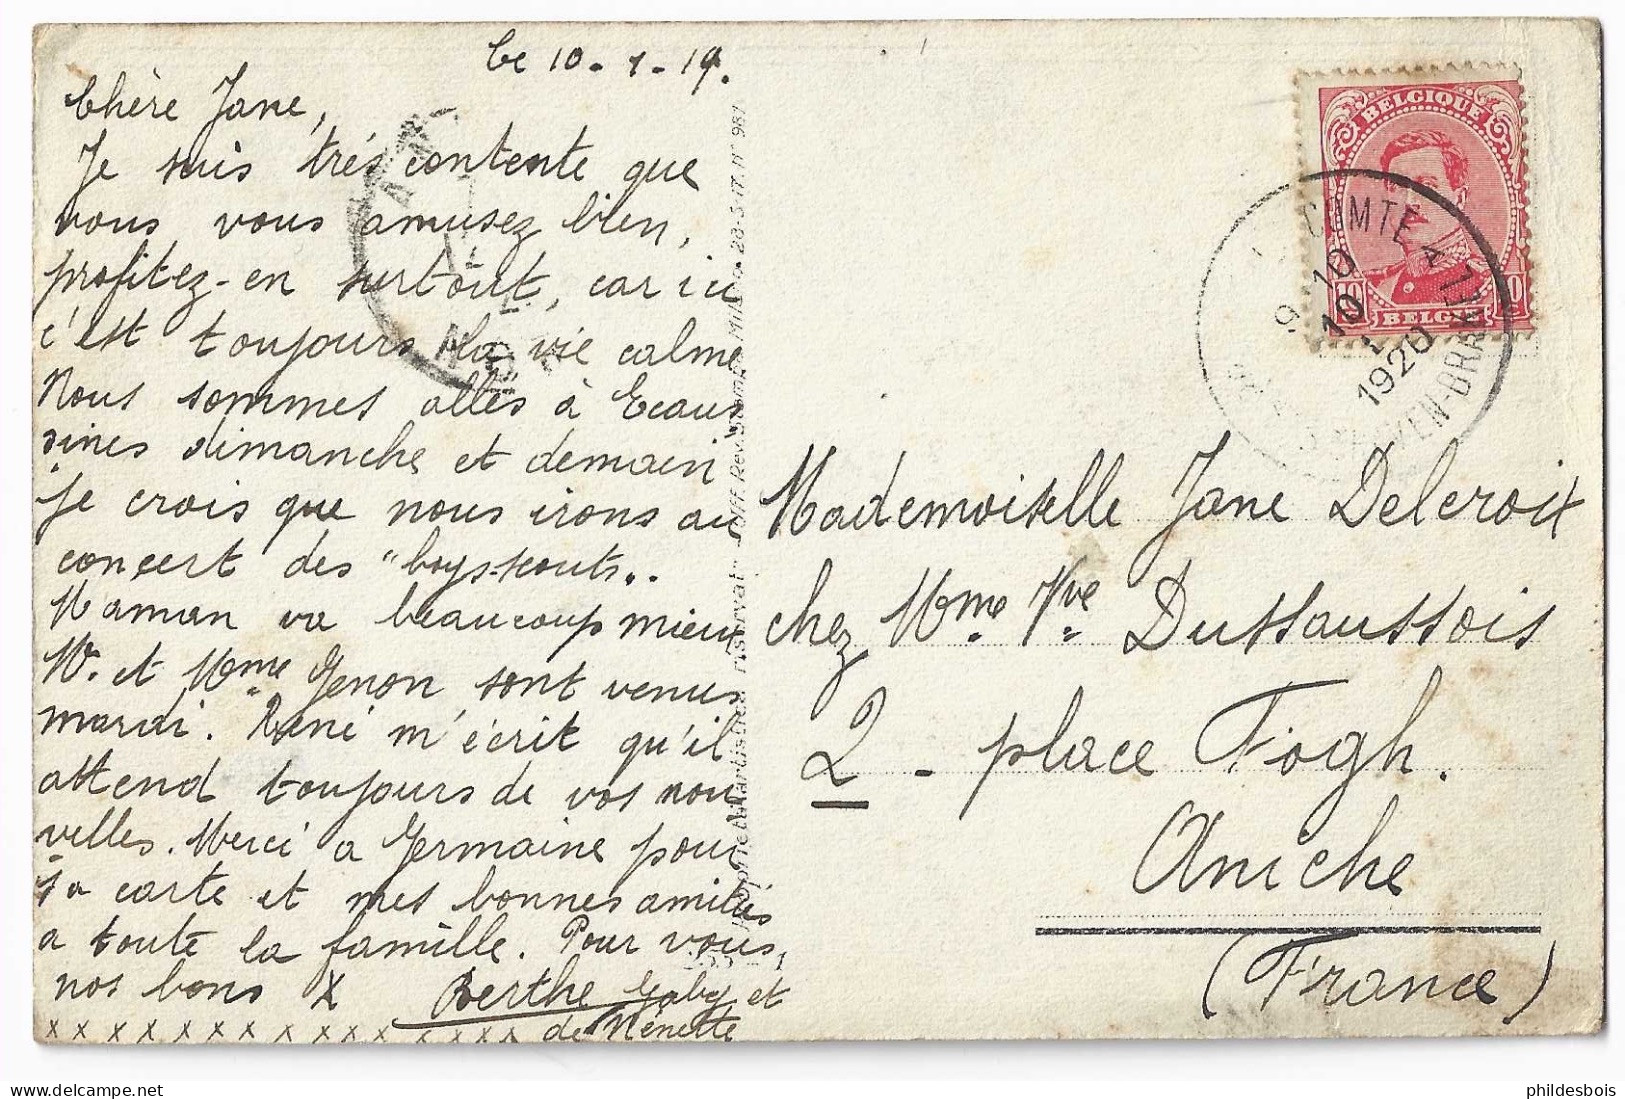 Le 10-1-19.
Chère Jane,
Je suis très contente que
vous vous amusez bien,
profitez-en surtout, car ici
c'est toujours la vie calme
Nous sommes allés à Ecaus
sines dimanche et demain
je crois que nous irons au
concert des "boys-scouts..
Maman va beaucoup mieux
Mr. et Mme Genon sont venus
mardi. René m'écrit qu'il
attend toujours de vos nou
velles. Merci a Germaine pour
sa carte et mes bonnes amitiés
a toute la famille. Pour vous,
nos bons X Berthe Gaby et
x x x x x x x x x x x x x x de Nénette
BELGIQUE
10 10
BELGIË
COMTE
9-10
10
1920
Mademoiselle Jane Delcroix
chez Mme Vve Dussaussois
2 - place Fogh.
Aniche
(France)
phildesbois